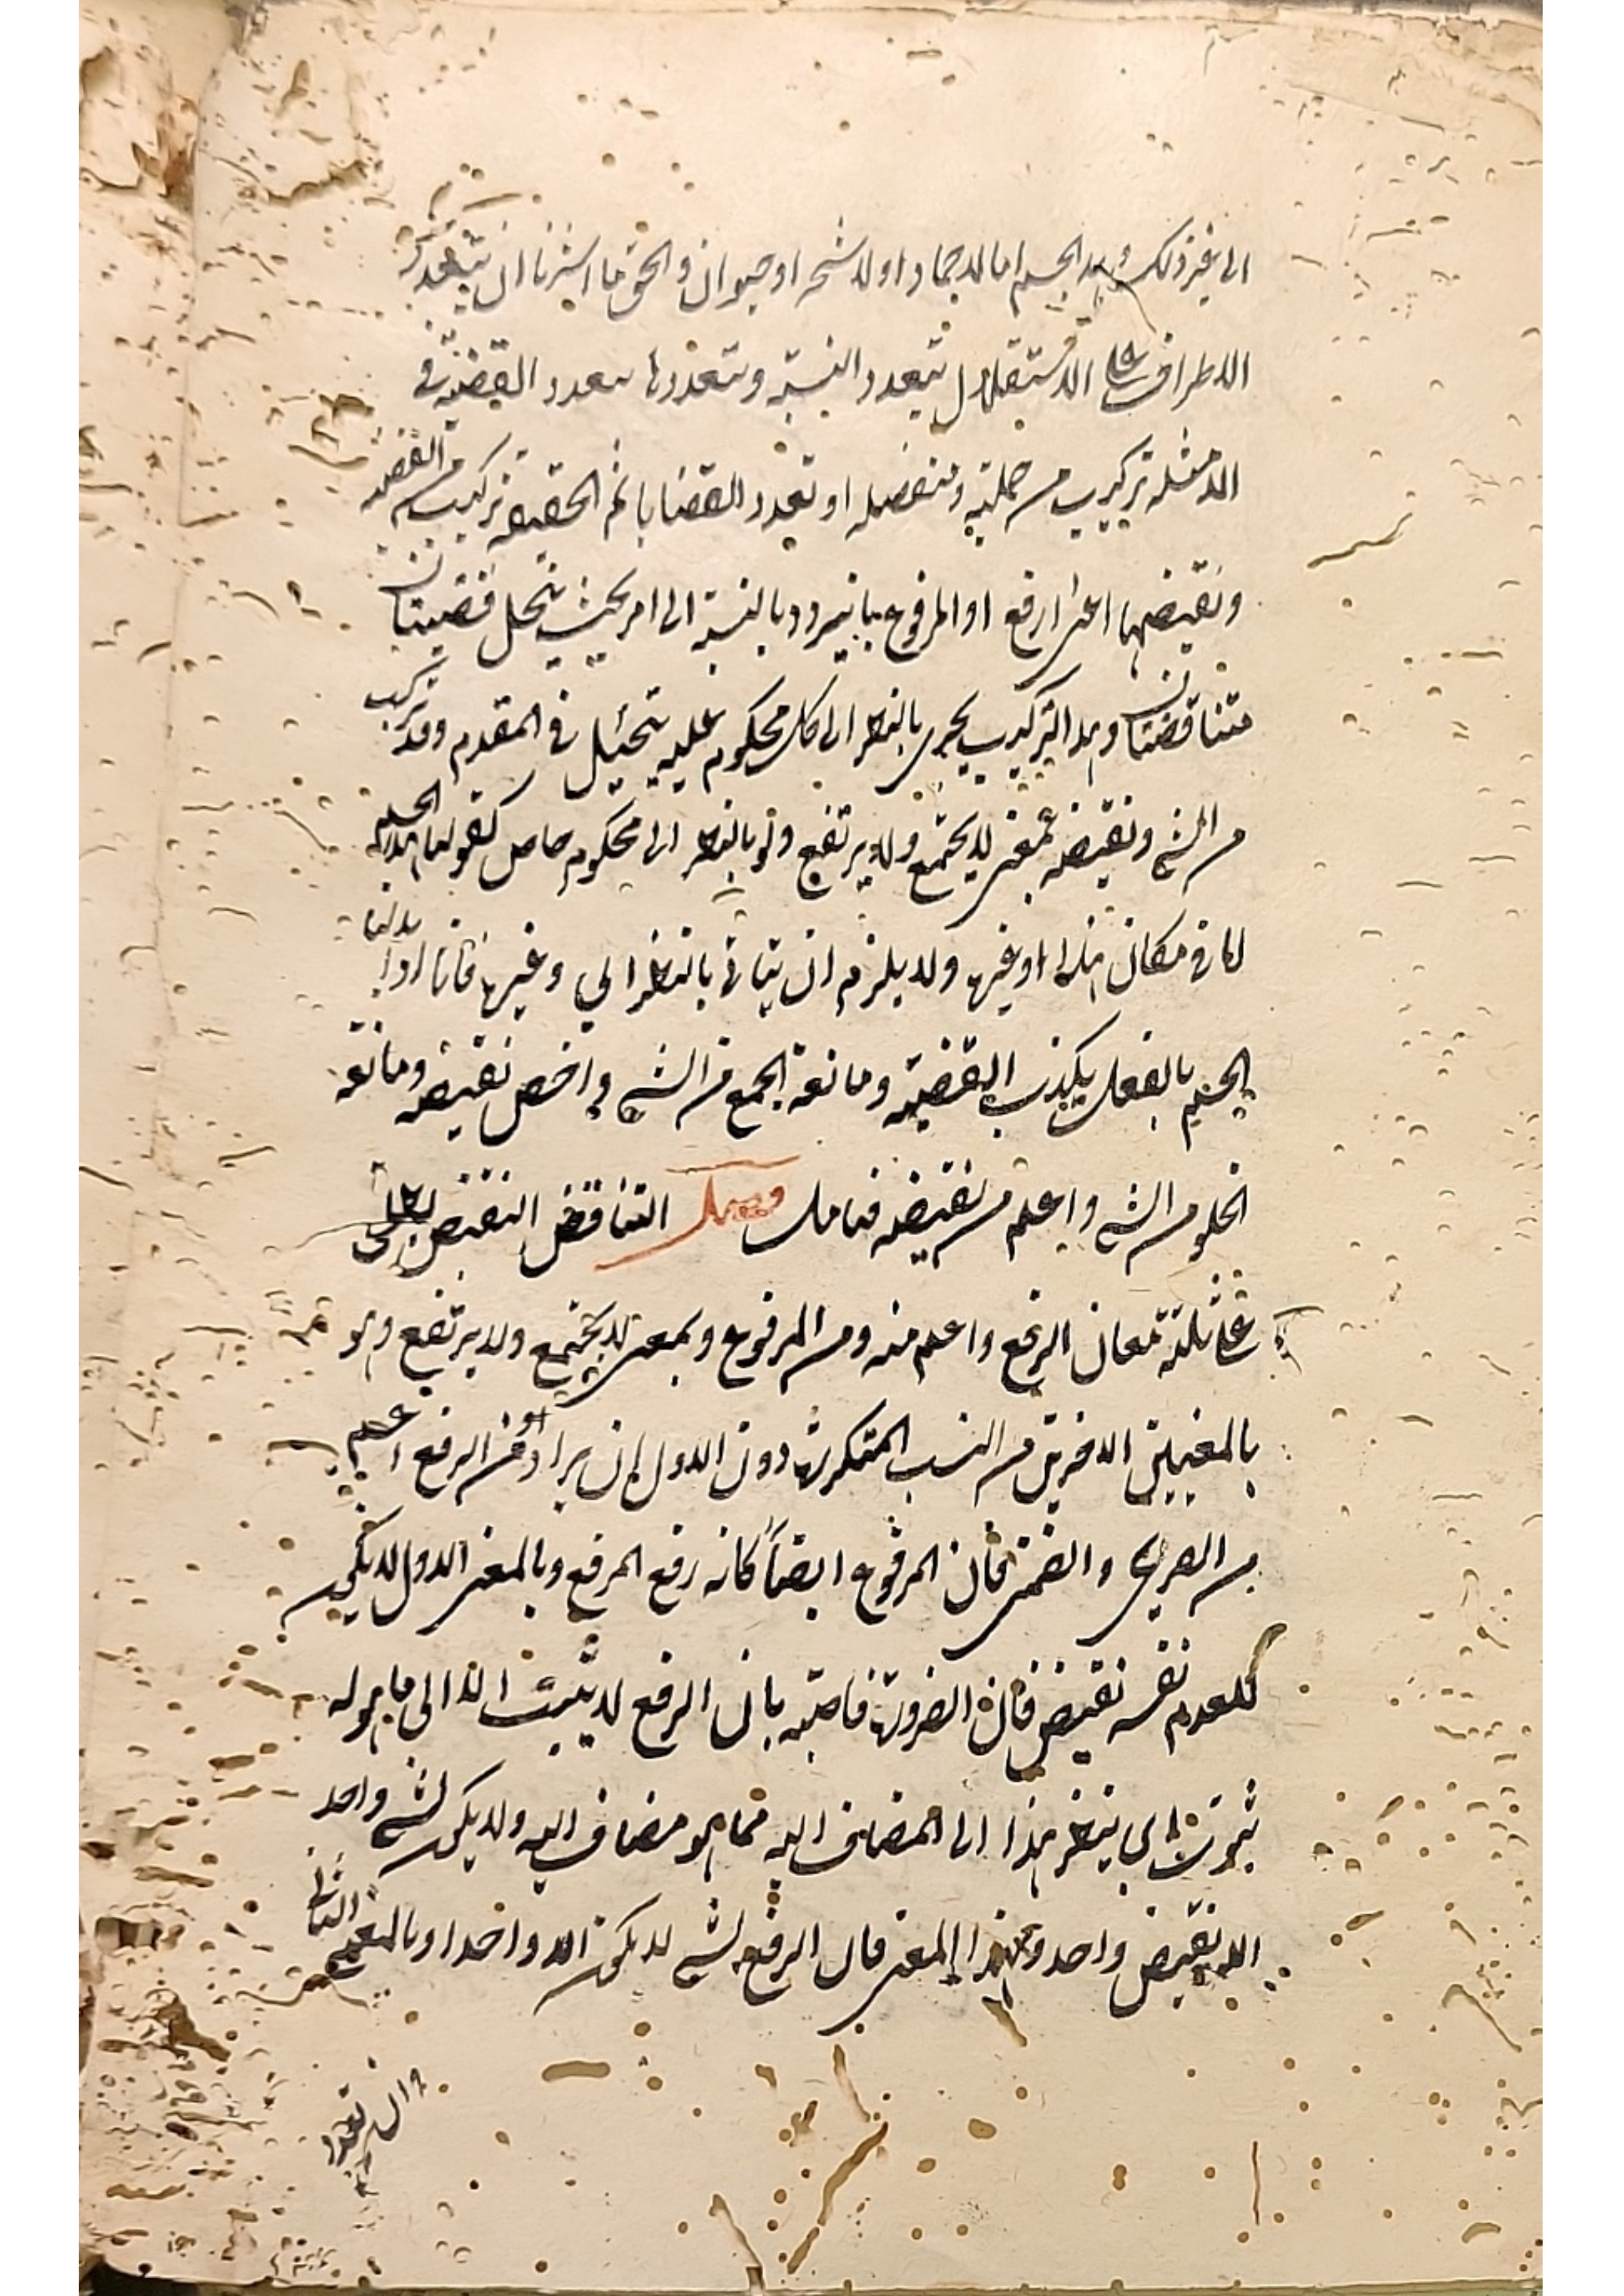 الى غير ذلك وهذا الجسم اما لا جماد او لا شجر او حيوان والحق ما اشرنا ان بتعدد
الاطراف على الاستقلال تتعدد النسبة وبتعددها يتعدد القضية ففي
الامثلة تركيب من حملية ومنفصلة او تعدد القضايا ثم الحقيقة تركب من القضية
ونقيضها اعنى رفع او المرفوع بالنسبة الى امر بحيث ينحل قضيتان
متناقضتان وهذا التركيب يجرى بالنظر الى كل محكوم عليه يتخيل فى المقدم وقد تركب
من الشىء ونقيضه بمعنى لا يجتمع ولا يرتفع ولو بالنظر الى محكوم خاص كقولنا هذا الجسم
اما فى مكان هذا او غيره ولا يلزم ان يتاتى بالنظر الى وغيرها فانا اذا بدلنا
الجسم بالفعل يكذب القضية ومانعة الجمع من الشىء واخص نقيضه ومانعة
الخلو من الشىء واعم من نقيضه فتامل فصل التناقض النقيض يطلق
على ثلثة معان الرفع واعم منه ومن المرفوع وبمعنى لا يجتمع ولا يرتفع وهو
بالمعنيين الاخرين من النسب المتكررة دون الاول الا ان يراد من الرفع اعم
من الصريح والضمنى فان المرفوع ايضاً كانه رفع الرفع وبالمعنى الاول لا يكون
للعدم نفسه نقيض فان الضرورة قاضية بان الرفع لا ينسب الا الى ما هو له
ثبوت اى ينظر هذا الى المضاف اليه مما هو مضاف اليه ولا يكون لشىء واحد
الا نقيض واحد وبهذا المعنى قال الرفع لشىء لا يكون الا واحدا وبالمعنى الثانى